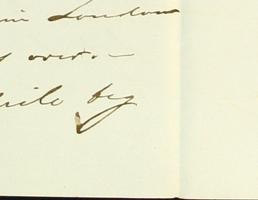 in London
over. –
while beg